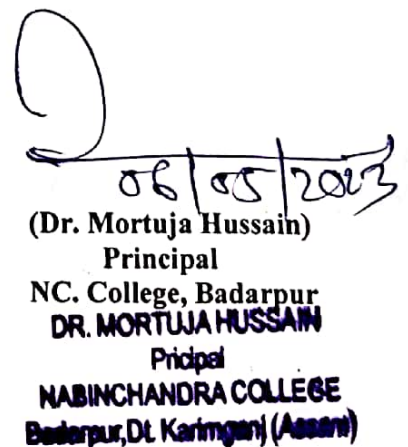 06/05/2023
(Dr. Mortuja Hussain)
Principal
NC. College, Badarpur
DR. MORTUJA HUSSAIN
Pricipal
NABINCHANDRA COLLEGE
Badarpur, Dt. Karimganj (Assam)